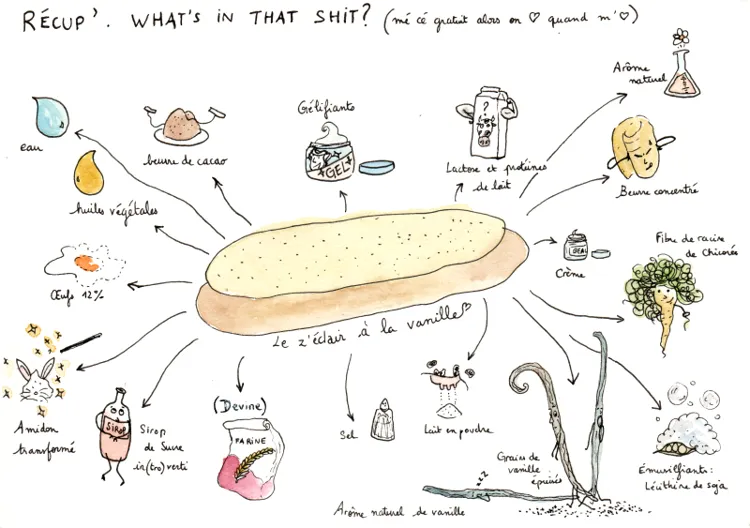 RÉCUP'. WHAT'S IN THAT SHIT? (mé cé gratuit alors on ♡ quand m'♡)
Arôme
naturel
eau
beurre de cacao
Gélifiants
GEL
?
Lactose et protéines
de lait
Beurre concentré
huiles végétales
Crème
Fibre de racine
de Chicorée
Œufs 12%
Le z'éclair à la vanille♡
Amidon
transformé
SIROP
Sirop
de Sucre
in(tro)verti
(Devine)
FARINE
Sel
Lait en poudre
Graines de
vanille
épuisées
zzz
Arôme naturel de vanille
Emulsifiants:
Lécithine de soja